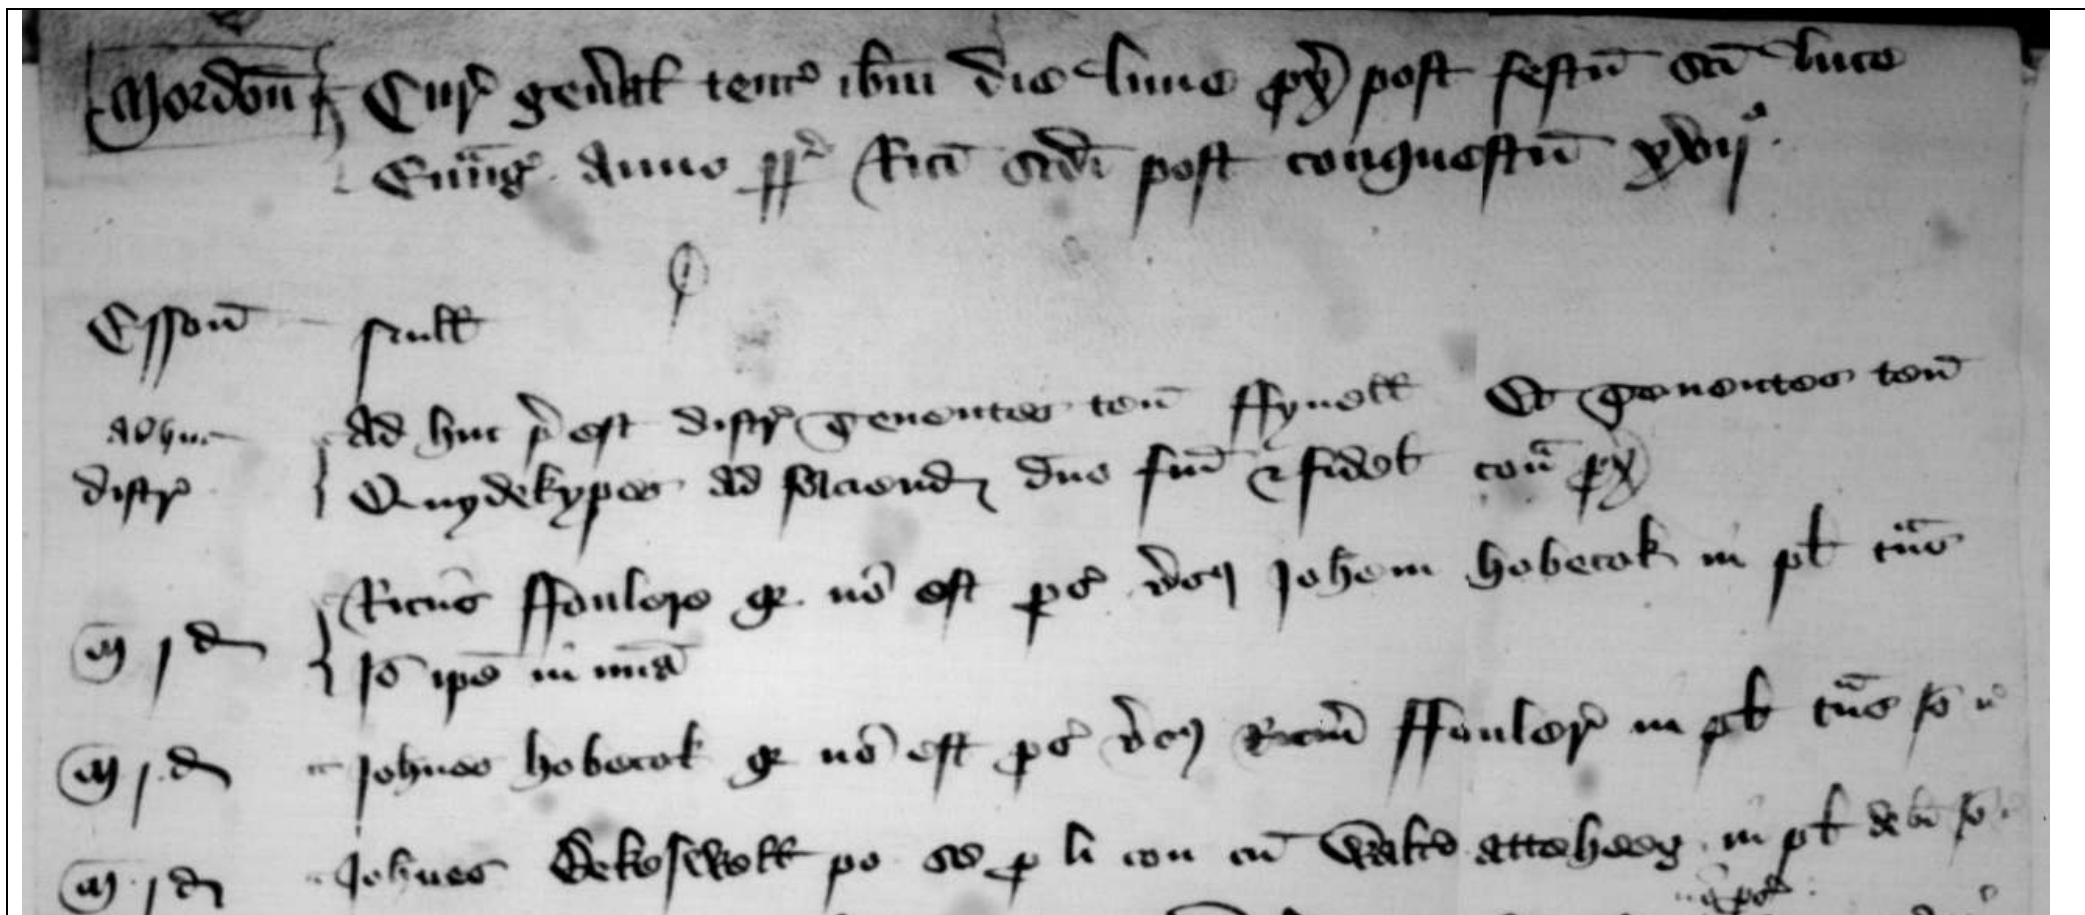 Mordon Cur gen̄al tent ibm die lune px post festū sci luce
Eu̅ng Anno rr Rici scdi post conquestū xvijº
Esson null
Adhuc Ad huc p est distr tenentes ten ffynell Et tenentes ten
distr Quydekypes ad faciend dno fid & fidel con px
Ricus ffoulere qr no est ps vsus Johem hobecok in pl tns
m j d Jo ipe in mia
m j d Johnes hobecok qr no est ps vsus Ricm ffouler in pl tns Jo
m j d Johnes Bekeswell po se p li con cu Walto atteheg in pl deb Jo